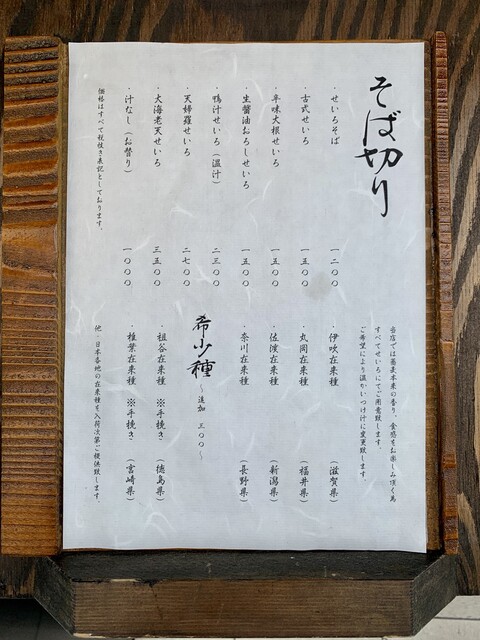 そば切り
・せいろそば 一二〇〇
・古式せいろ 一五〇〇
・辛味大根せいろ 一五〇〇
・生醤油おろしせいろ 一五〇〇
・鴨汁せいろ（温汁） 二三〇〇
・天婦羅せいろ 二七〇〇
・大海老天せいろ 三五〇〇
・汁なし（お替り） 一〇〇〇
価格はすべて税抜き表記としております。
当店では蕎麦本来の香り、食感をお楽しみ頂く為
すべてせいろにてご用意致します。
ご希望により温かいつけ汁に変更致します。
・伊吹在来種 （滋賀県）
・丸岡在来種 （福井県）
・佐渡在来種 （新潟県）
・奈川在来種 （長野県）
希少種 ～追加 三〇〇～
・祖谷在来種 ※手挽き （徳島県）
・椎葉在来種 ※手挽き （宮崎県）
他・日本各地の在来種を入荷次第ご提供致します。